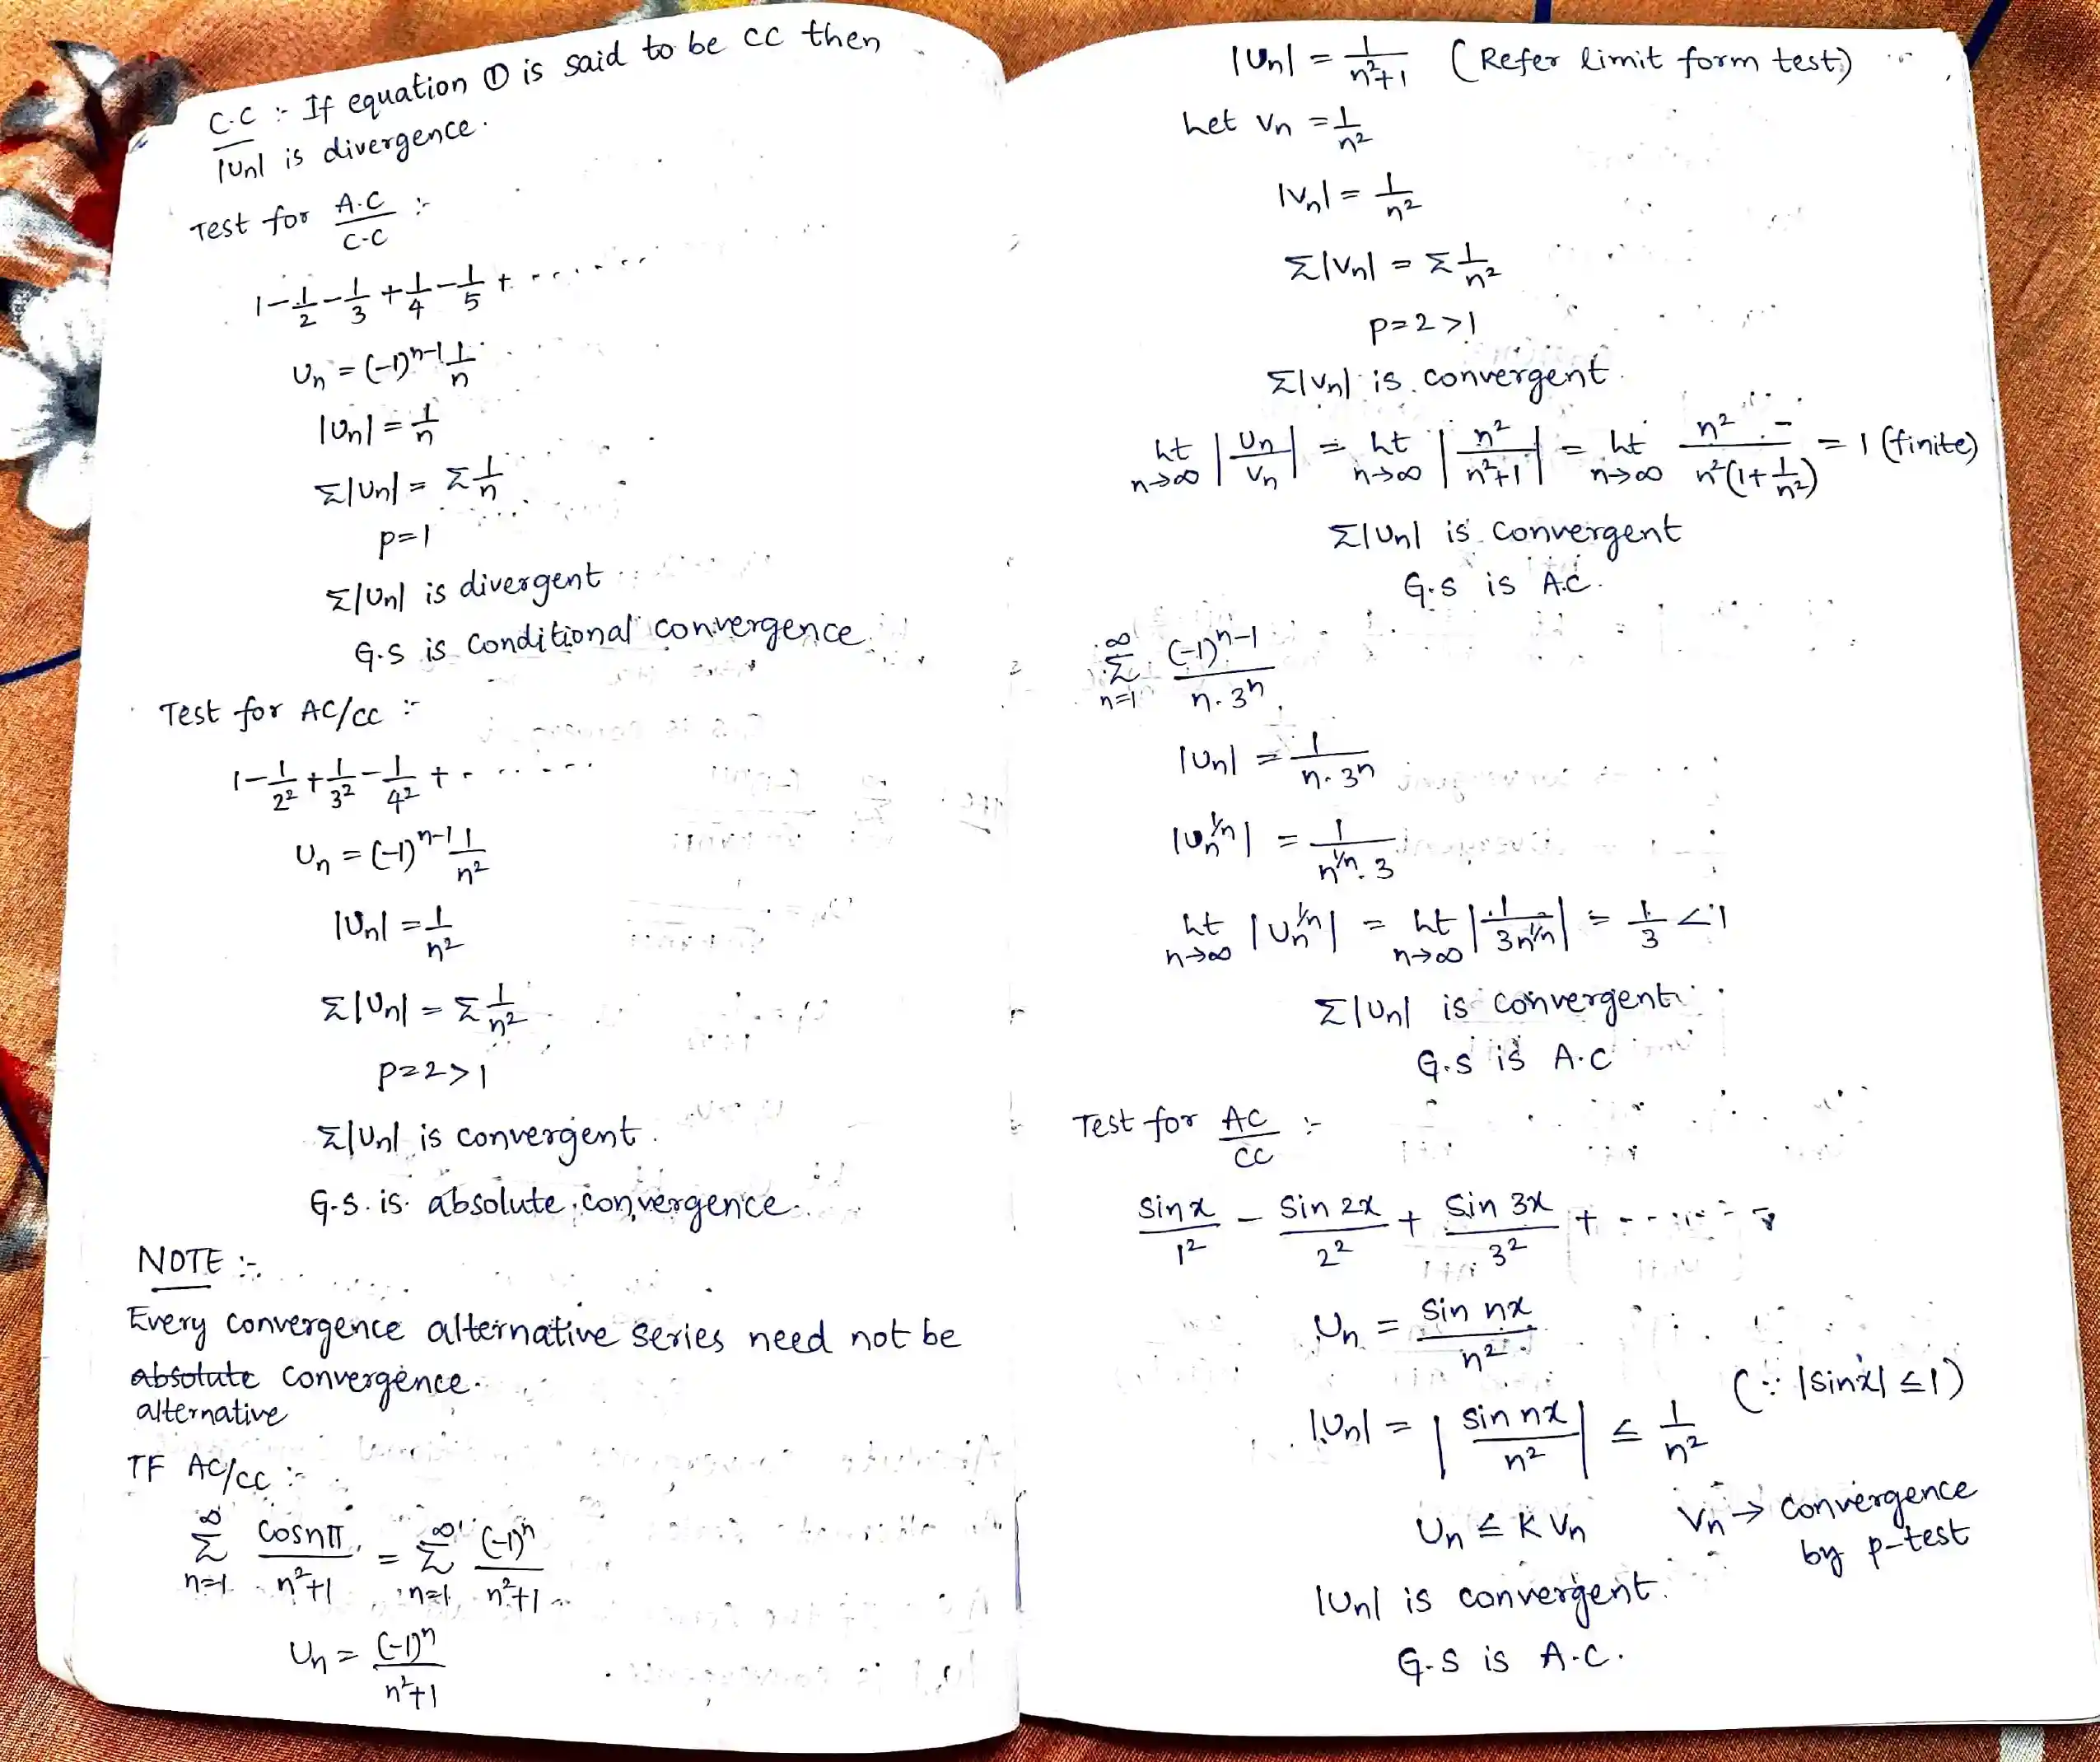 C.C :- If equation ① is said to be CC then
|Un| is divergence.
Test for A.C/C-C :-
1 - 1/2 - 1/3 + 1/4 - 1/5 + ......
Un = (-1)^{n-1} 1/n
|Un| = 1/n
Σ|Un| = Σ 1/n
p=1
Σ|Un| is divergent
G.S is Conditional convergence.
Test for AC/CC :-
1 - 1/2² + 1/3² - 1/4² + ......
Un = (-1)^{n-1} 1/n²
|Un| = 1/n²
Σ|Un| = Σ 1/n²
p=2>1
Σ|Un| is convergent.
G.S. is absolute convergence.
NOTE :-
Every convergence alternative series need not be
absolute convergence.
alternative
TF AC/CC :-
∞Σn=1 cosnπ/n²+1 = ∞Σn=1 (-1)^n/n²+1
Un = (-1)^n/n²+1
|Un| = 1/n²+1 (Refer limit form test)
Let Vn = 1/n²
|Vn| = 1/n²
Σ|Vn| = Σ 1/n²
p=2>1
Σ|Vn| is convergent.
Lt n→∞ |Un/Vn| = Lt n→∞ |n²/n²+1| = Lt n→∞ n²/n²(1+1/n²) = 1 (finite)
Σ|Un| is convergent
G.S is A.C.
∞Σn=1 (-1)^{n-1}/n.3^n
|Un| = 1/n.3^n
|Un^{1/n}| = 1/n^{1/n}.3
Lt n→∞ |Un^{1/n}| = Lt n→∞ |1/3n^{1/n}| = 1/3 <1
Σ|Un| is convergent.
G.S is A.C
Test for AC/CC :-
Sinx/1² - Sin 2x/2² + Sin 3x/3² + ------
Un = Sin nx/n²
|Un| = |Sin nx/n²| ≤ 1/n² (∵ |Sinx| ≤1)
Un ≤ K Vn Vn → convergence
by p-test
|Un| is convergent.
G.S is A.C.